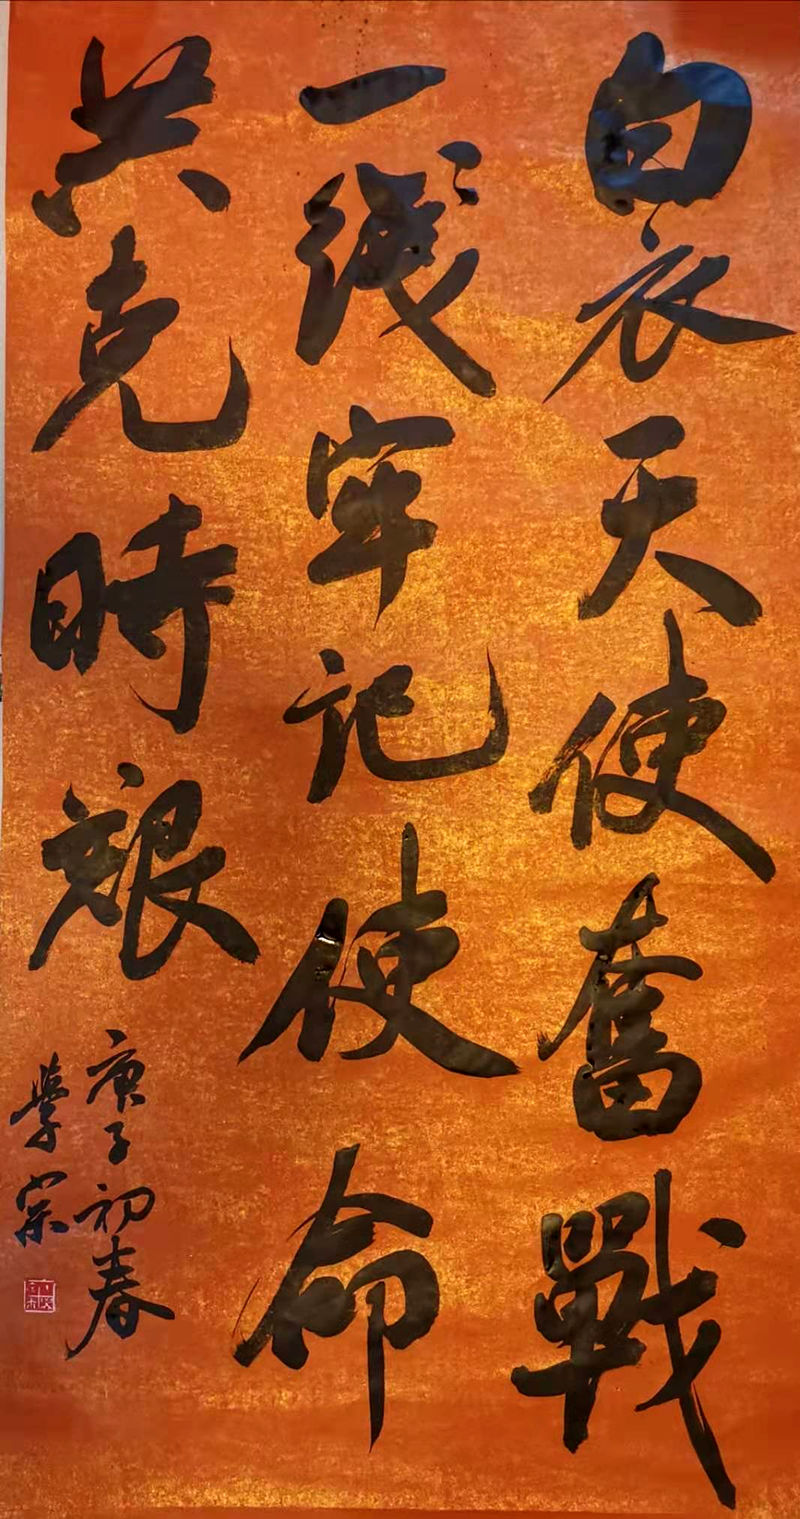 白衣天使奮戰
一线牢记使命
共克時艱
庚子初春
學宗